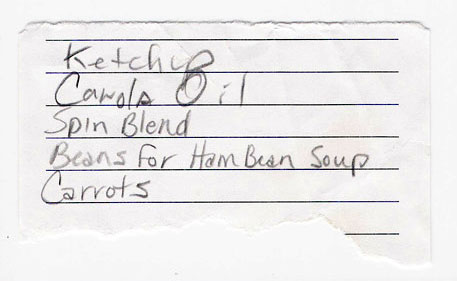 Ketchup
Canola Oil
Spin Blend
Beans For Ham Bean Soup
Carrots